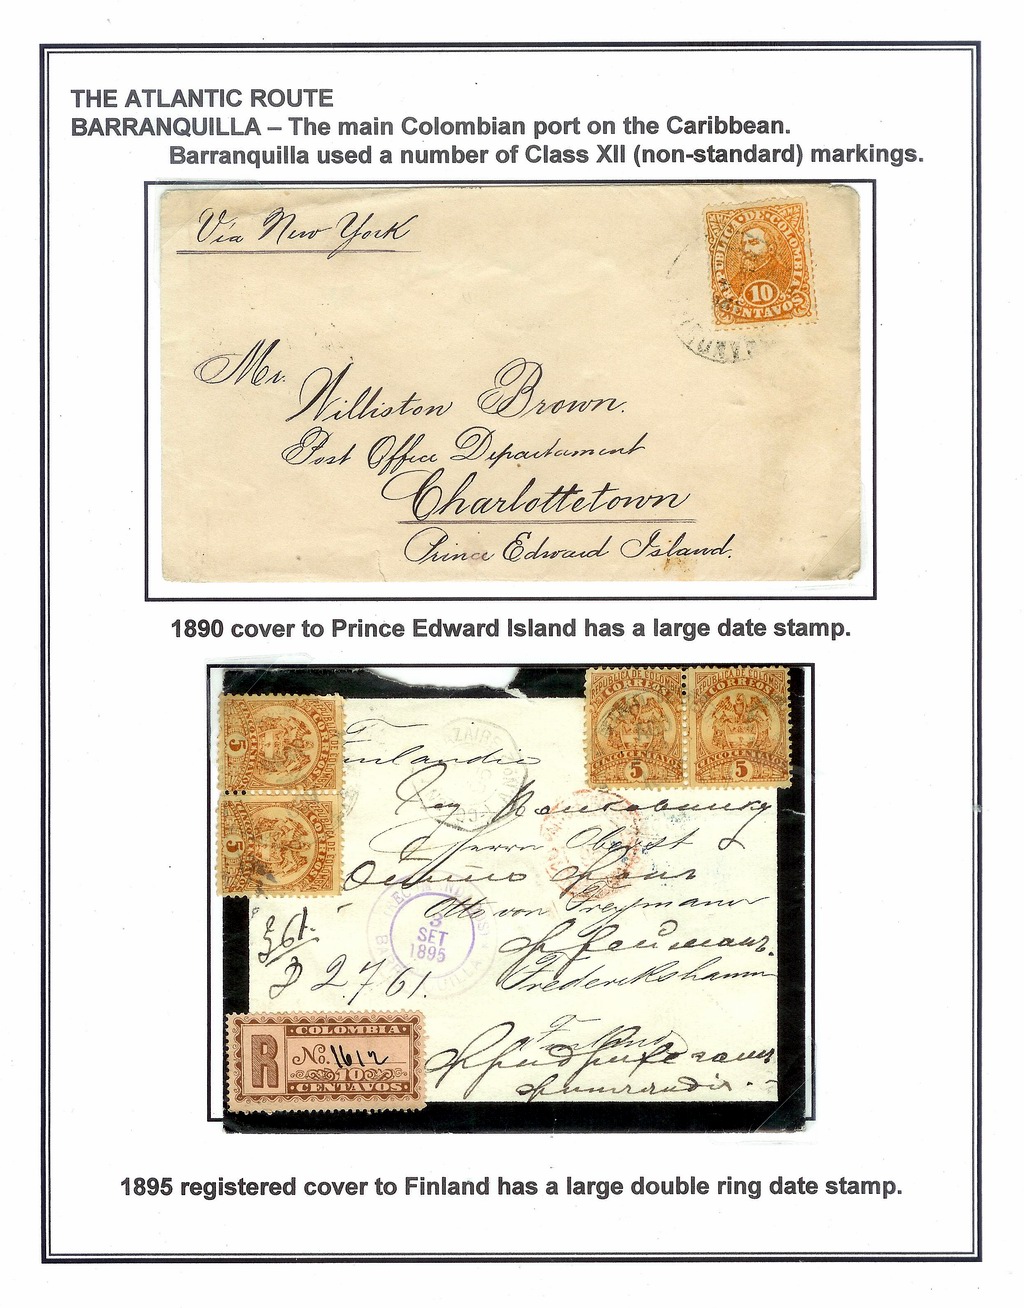 THE ATLANTIC ROUTE
BARRANQUILLA – The main Colombian port on the Caribbean.
Barranquilla used a number of Class XII (non-standard) markings.
Via New York
REPUBLICA DE COLOMBIA
10
CENTAVOS
Mr.
Williston Brown.
Post Office Departament
Charlottetown
Prince Edward Island.
1890 cover to Prince Edward Island has a large date stamp.
REPUBLICA DE COLOMBIA
CORREOS
CINCO CENTAVOS
5
REPUBLICA DE COLOMBIA
CORREOS
CINCO CENTAVOS
5
CORREOS
5
CORREOS
5
Finlandia
Herrn Oberst
Otto von Freymann
3
SET
1895
BARRANQUILLA
D 2761.
Frederikshamn
Finland
COLOMBIA
R
No. 1612
10
CENTAVOS
1895 registered cover to Finland has a large double ring date stamp.